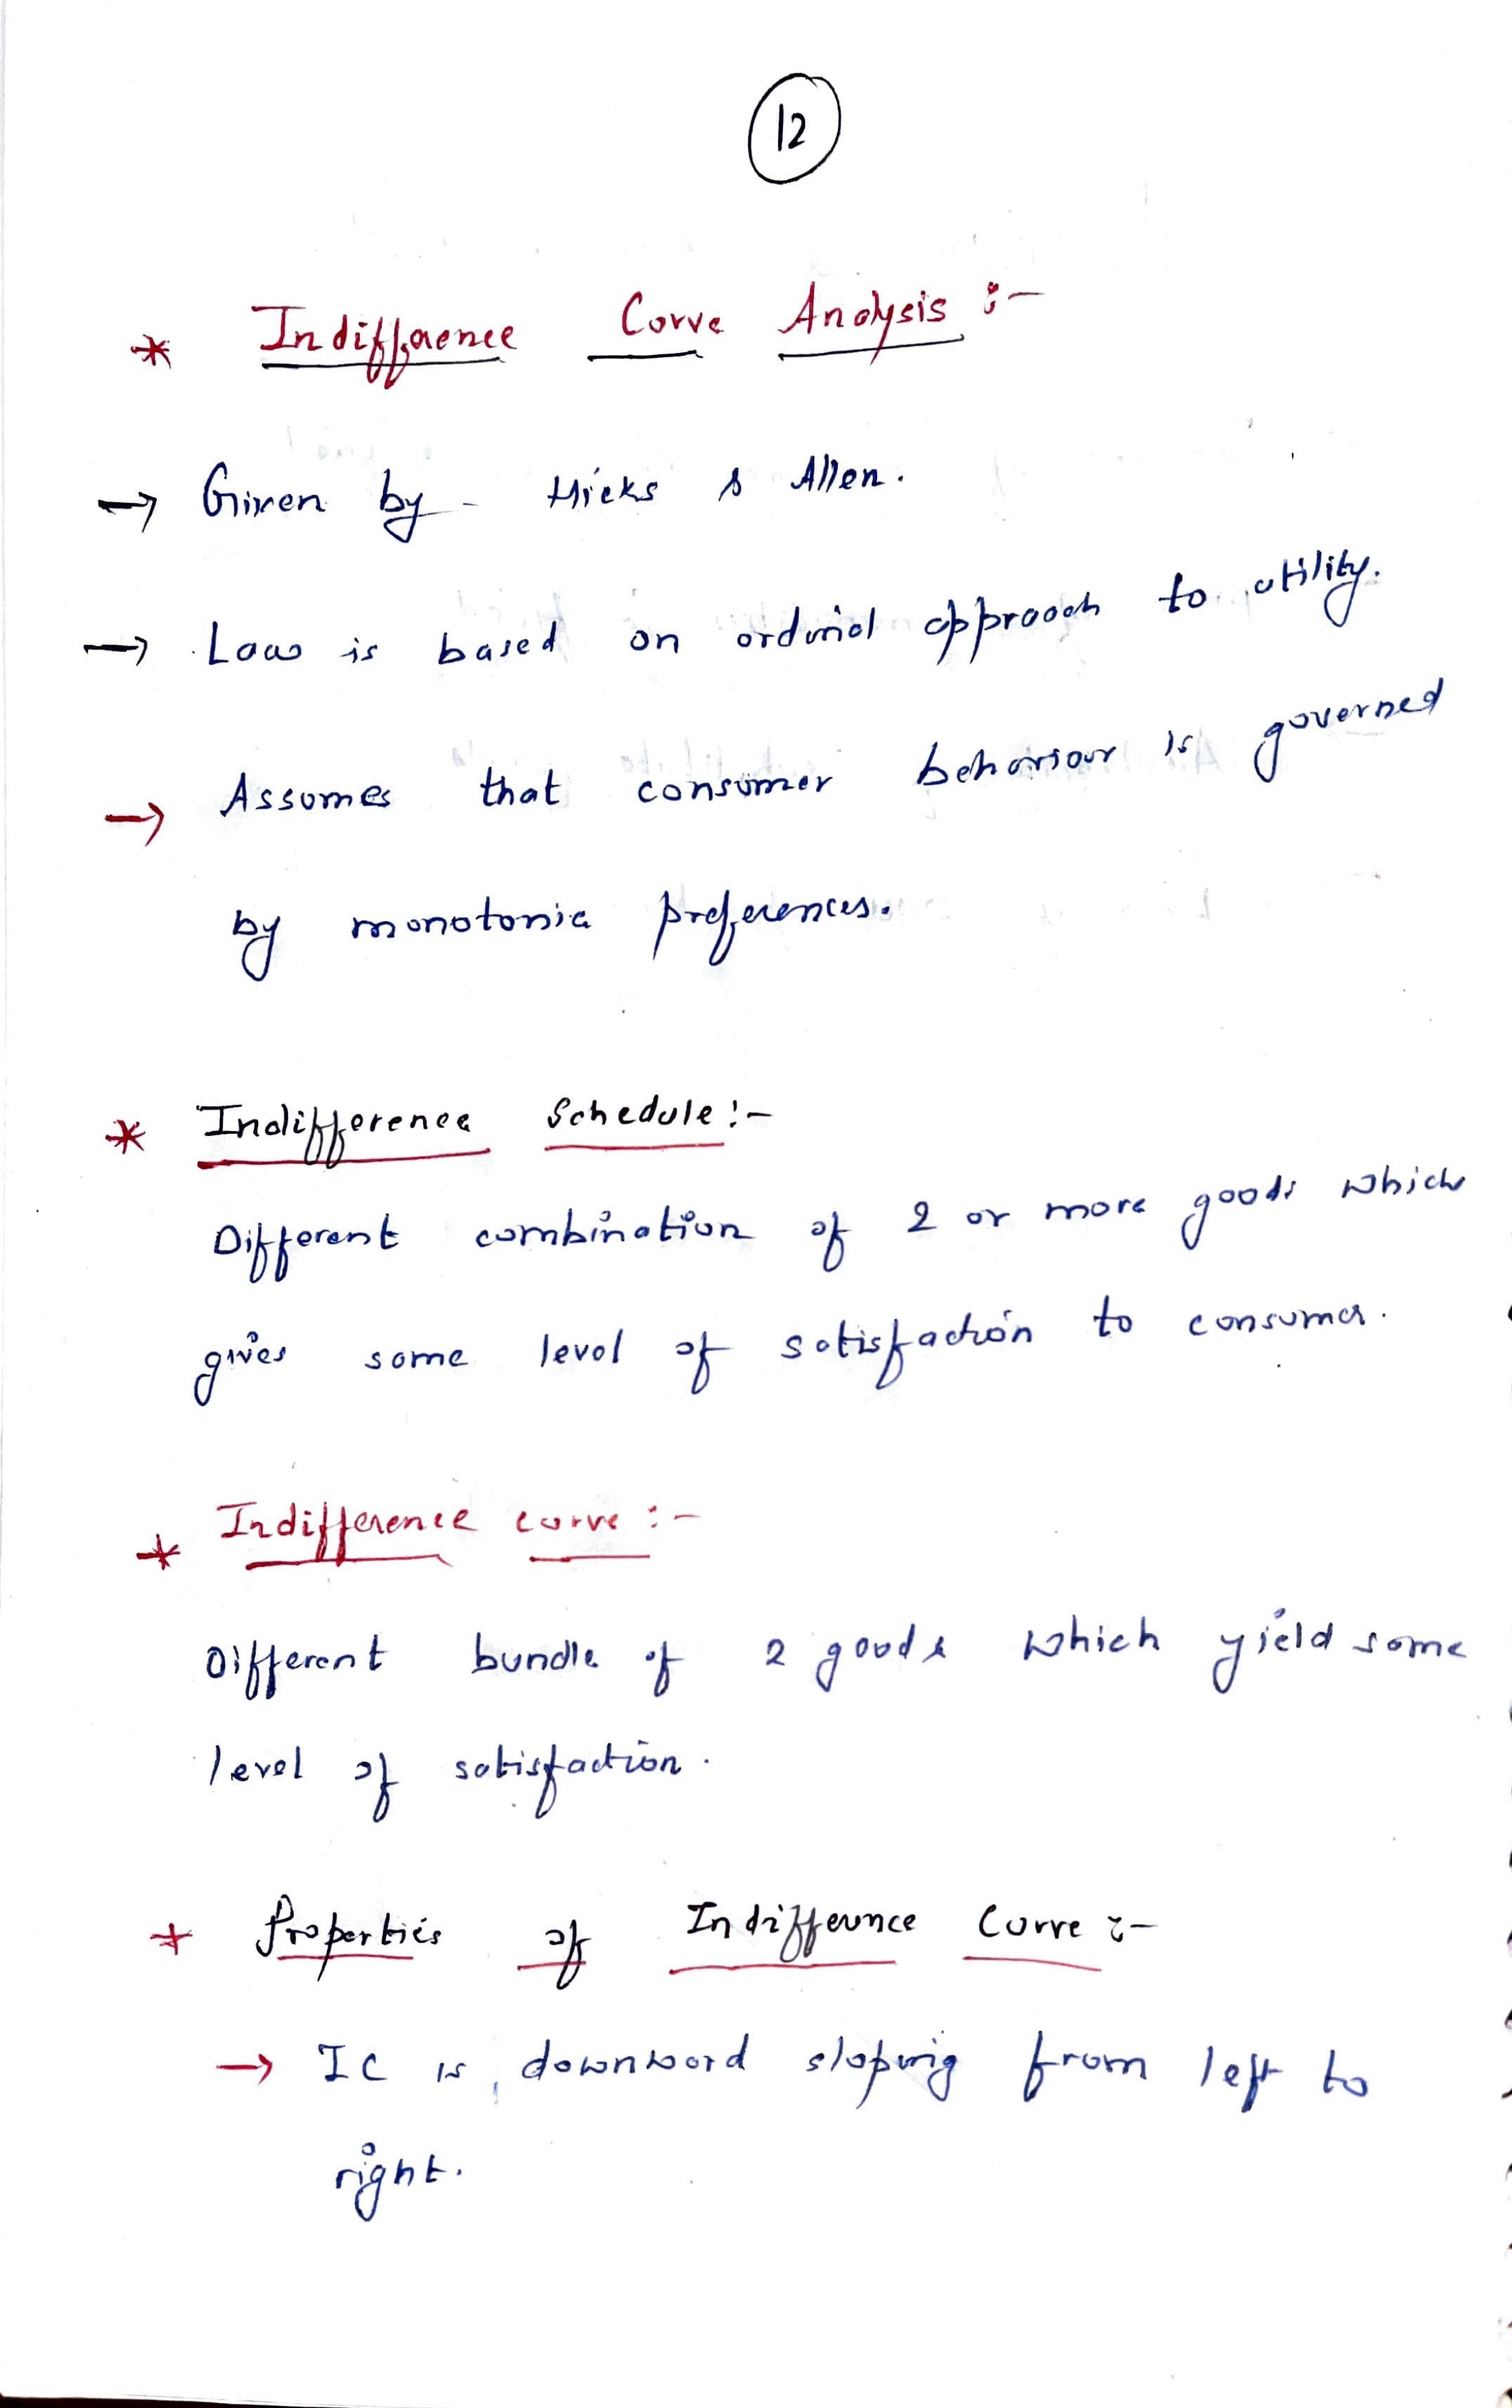 12
* Indifference Curve Analysis :-
→ Given by - Hicks & Allen.
→ Law is based on ordinal approach to utility.
→ Assumes that consumer behaviour is governed
by monotonic preferences.
* Indifference Schedule :-
Different combination of 2 or more goods which
gives same level of satisfaction to consumer.
* Indifference curve :-
Different bundle of 2 goods which yield same
level of satisfaction.
* Properties of Indifference Curve :-
→ IC is downward sloping from left to
right.